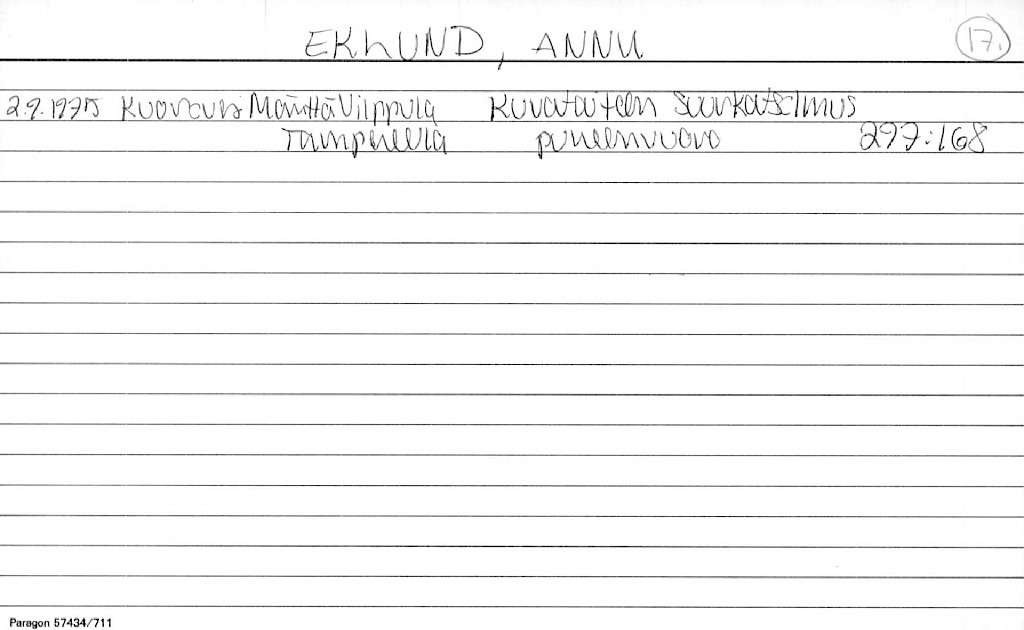 EKLUND, ANNU 17.
2.9.1975 Mänttä Vilppula Kuvataiteen suurkatselmus
Tampereella puheenvuoro 297:168
Paragon 57434/711